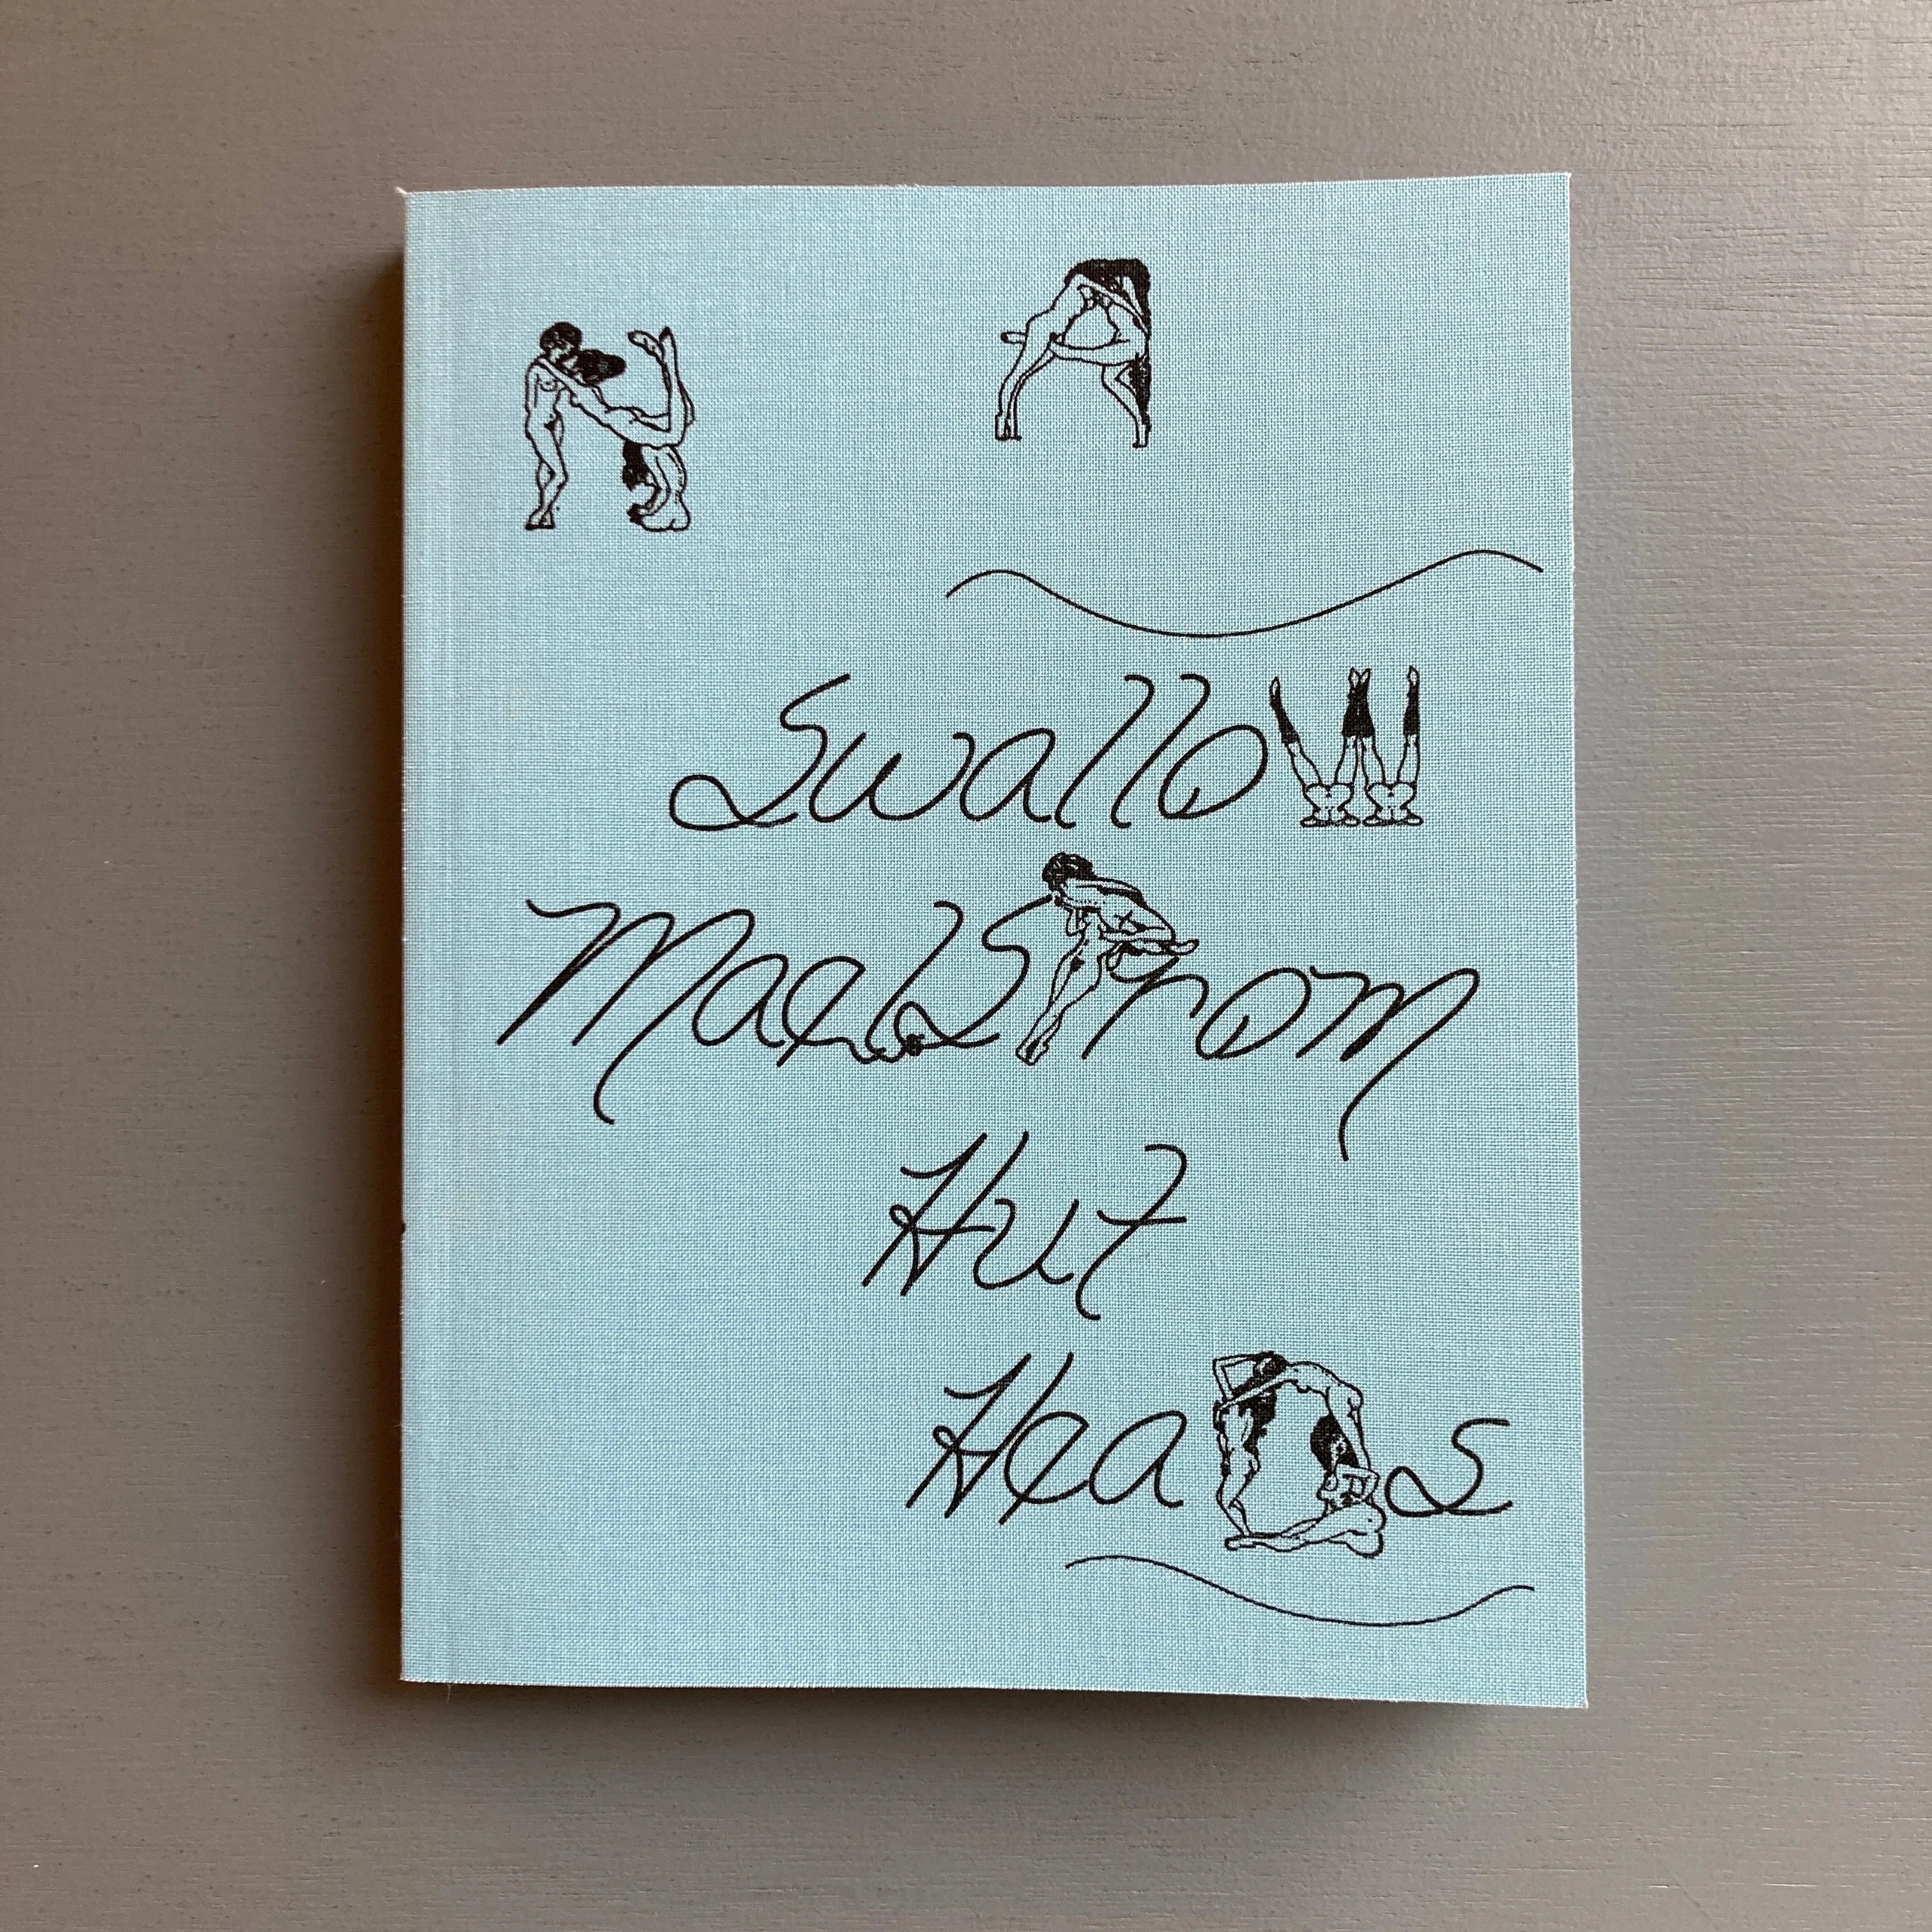 A
Swallow
Maelstrom
Hut
Heads